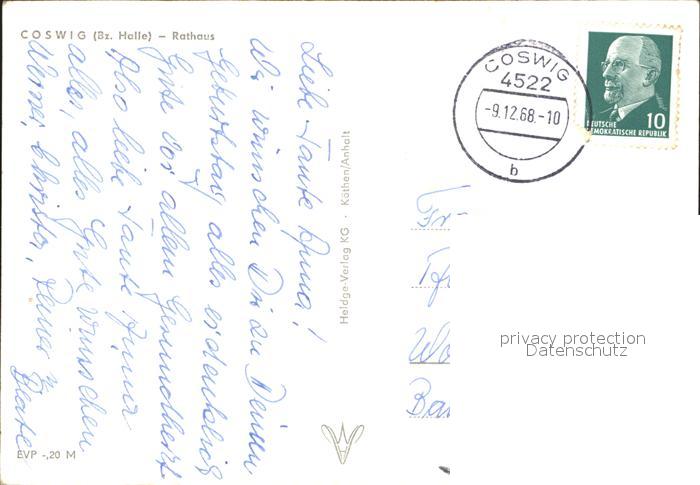 COSWIG (Bz. Halle) – Rathaus
Liebe Tante Anna!
Wir wünschen Dir zu Deinem
Geburtstag alles erdenklich
Gute vor allem Gesundheit
Also liebe Tante Anna
alles, alles Gute wünschen
Werner, Christa,
EVP -,20 M
Heldge-Verlag KG · Köthen/Anhalt
COSWIG
4522
-9.12.68.-10
b
DEUTSCHE
DEMOKRATISCHE REPUBLIK
10
Fr-
Wo
Ba
privacy protection
Datenschutz